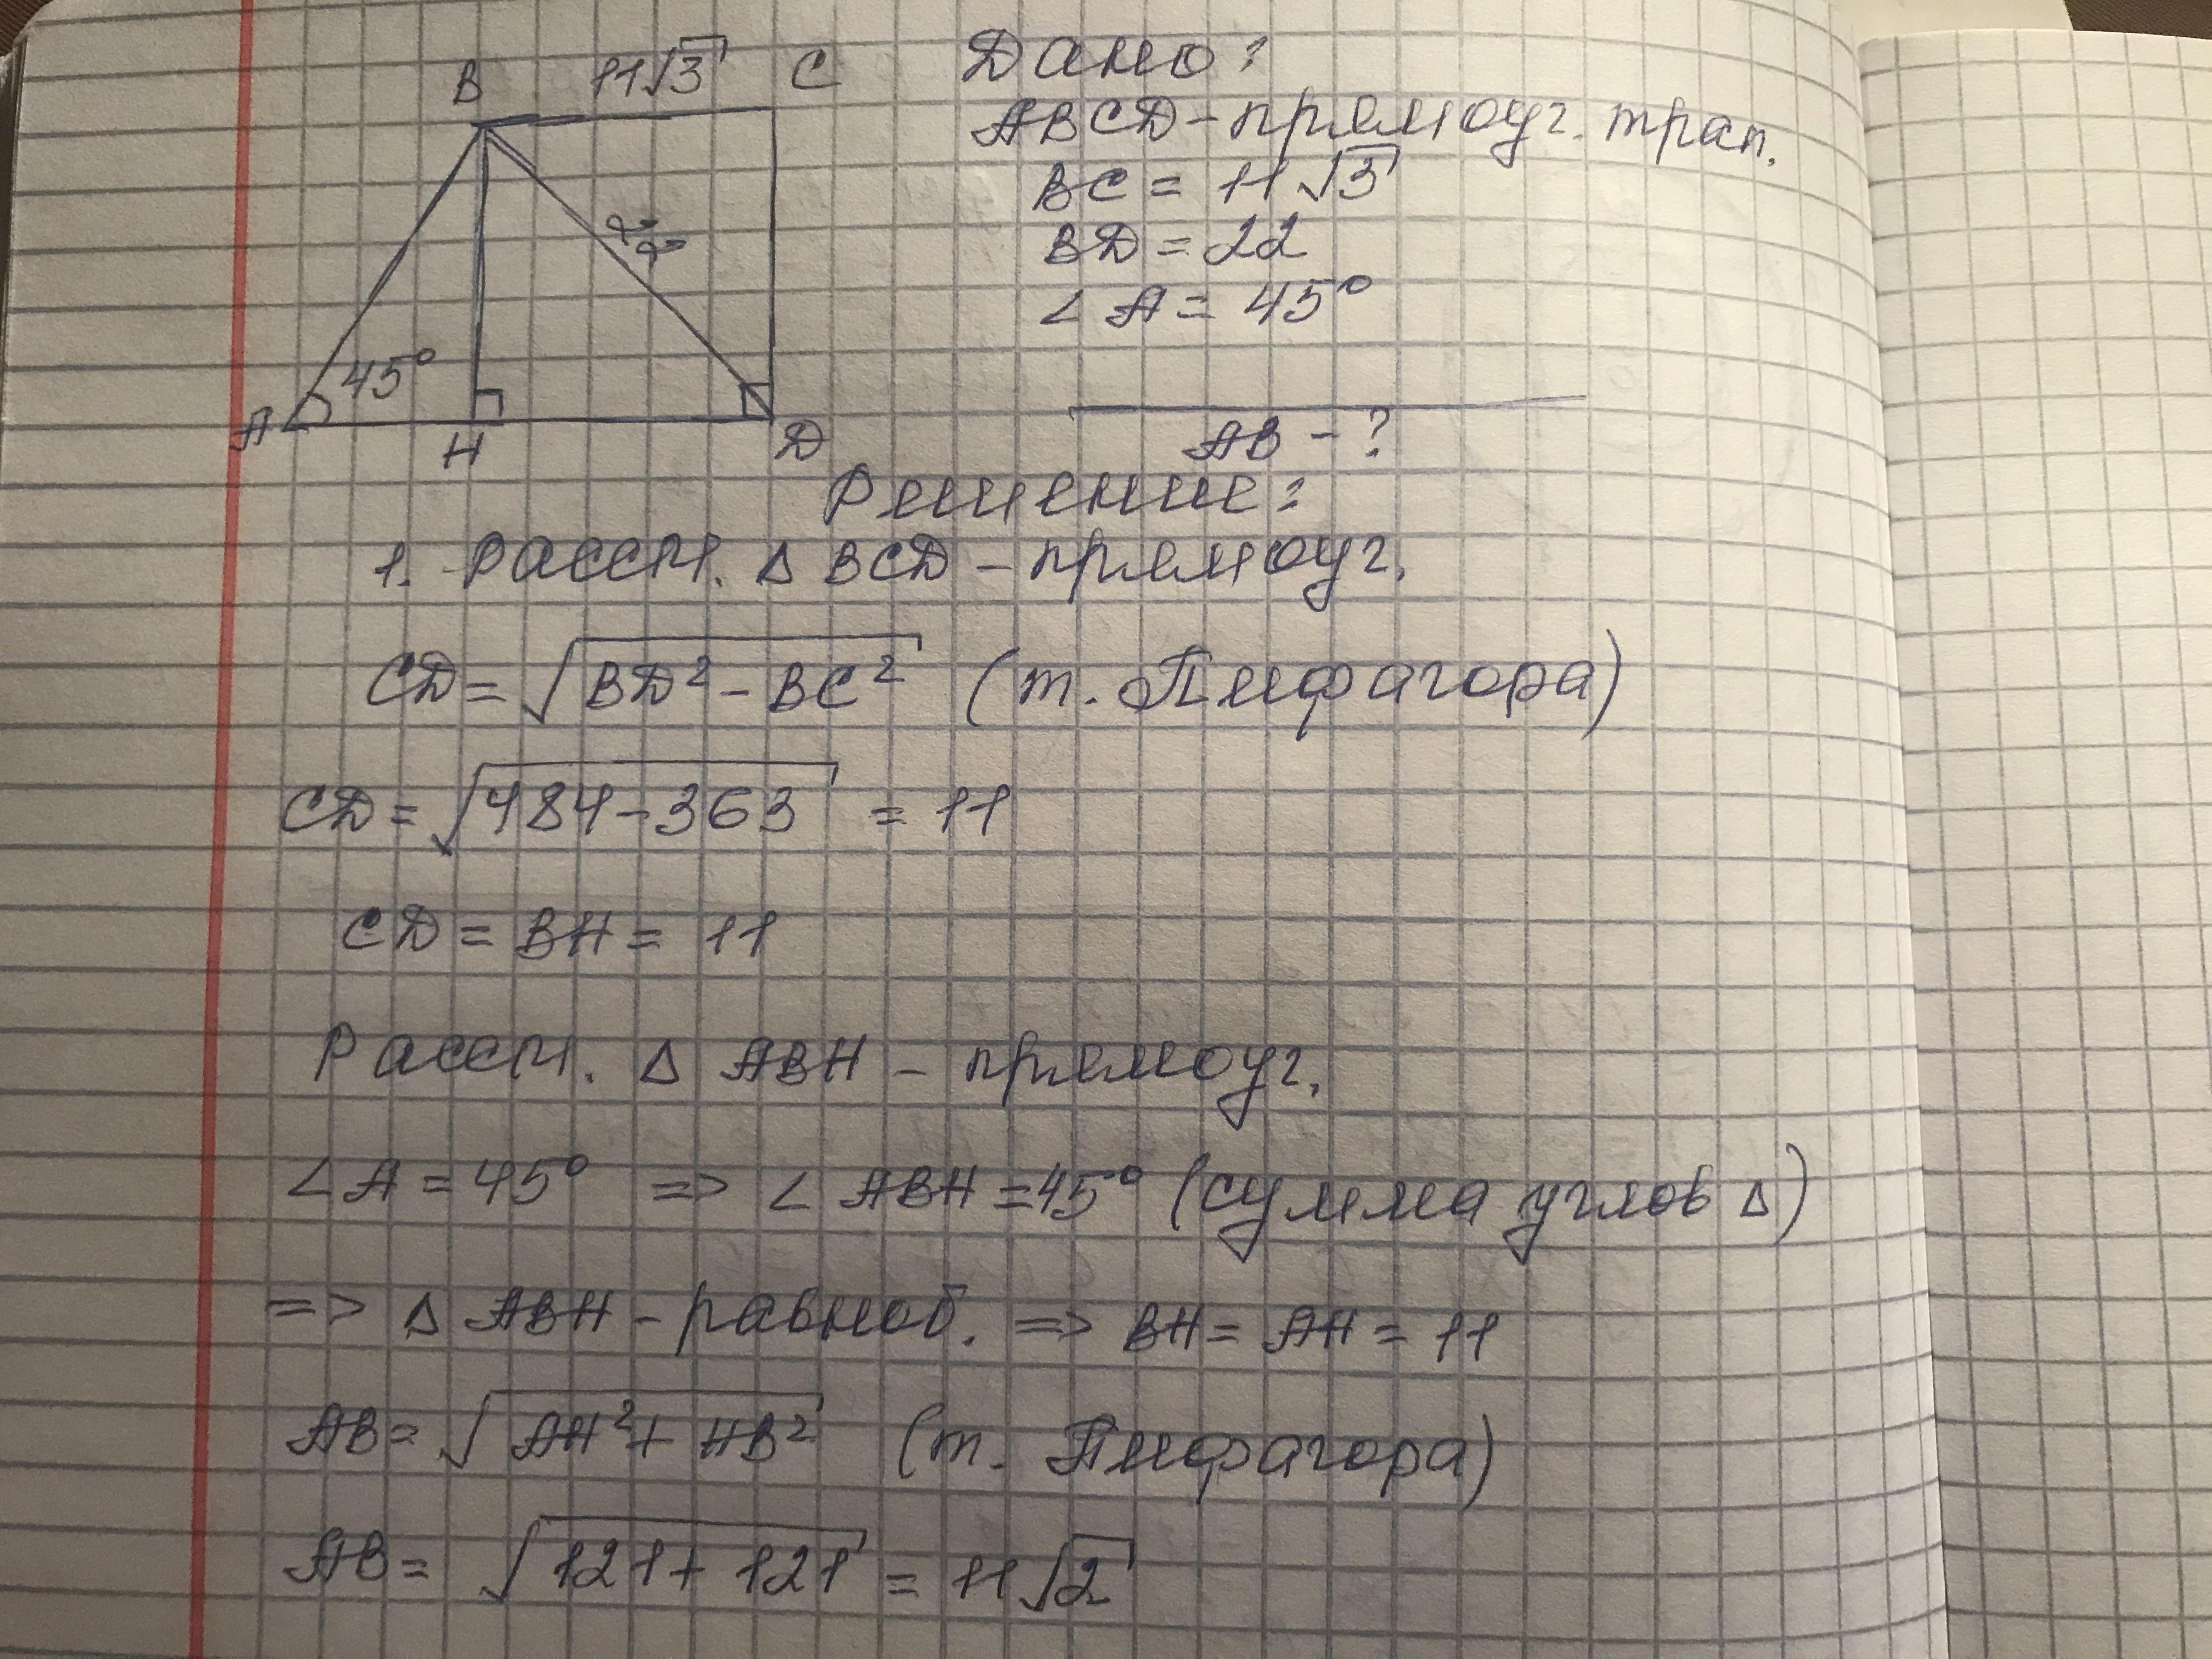 B 11√3 C
22
45°
A H D
Дано:
ABCD - прямоуг. трап.
BC = 11√3
BD = 22
∠ A = 45°
AB - ?
Решение:
1. Рассм. Δ BCD - прямоуг.
CD = √BD² - BC² (т. Пифагора)
CD = √484 - 363 = 11
CD = BH = 11
Рассм. Δ ABH - прямоуг.
∠ A = 45° => ∠ ABH = 45° (сумма углов Δ)
=> Δ ABH - равноб. => BH = AH = 11
AB = √AH² + HB² (т. Пифагора)
AB = √121 + 121 = 11√2